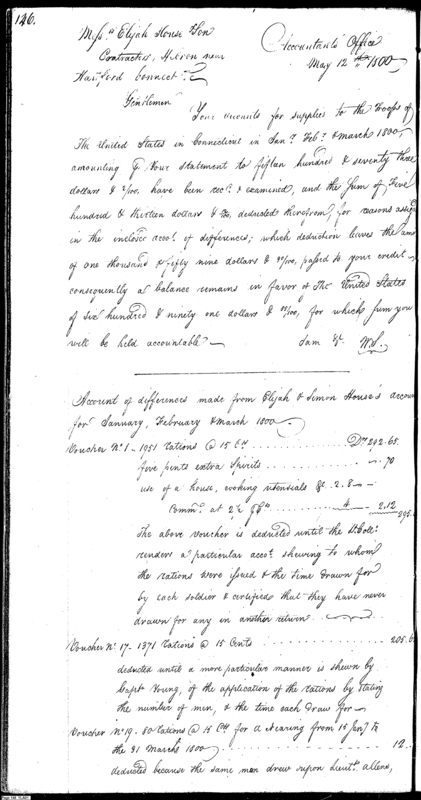 126.
Messrs Elijah House & Son
Contractors, Hebron near
Hartford Connect.
Accountants' Office
May 12th 1800
Gentlemen
Your accounts for supplies to the Troops of
The United States in Connecticut in Jany. Feby. & March 1800,
amounting & Your statement to fifteen hundred & seventy three
dollars & /100, have been recd. & examined, and the Sum of Five
hundred & thirteen dollars & /100, deducted therefrom, for reasons assign
in the inclosed acct. of differences; which deduction leaves the am
of one thousand & fifty nine dollars & /100, passed to your credit
consequently a balance remains in favor of The United States
of six hundred & ninety one dollars & /100, for which sum you
will be held accountable
I am &c. W.S.
Account of differences made from Elijah & Simon House's accoun
for January, February & March 1800
Voucher No. 1. 1951 rations @ 15 Cts Drs 292.65.
five pints extra Spirits 70
use of a house, cooking utensials &c. 2.8
Commn. at 2½ 4 2.12
295.
The above voucher is deducted until the Lt. Colo.
renders a particular acct. shewing to whom
the rations were issued & the time drawn for
by each soldier & certifies that they have never
drawn for any in another return
Voucher No. 17. 1371 rations @ 15 Cents 205.6
deducted until a more particular manner is shewn by
Capt. Young, of the application of the rations by stating
the number of men, & the time each draw for
Voucher No. 19. 80 rations @ 15 Cts for a Nearing from 15 Jany. to
the 31 March 1800 12
deducted because the same man drew upon Lieut. Allens,